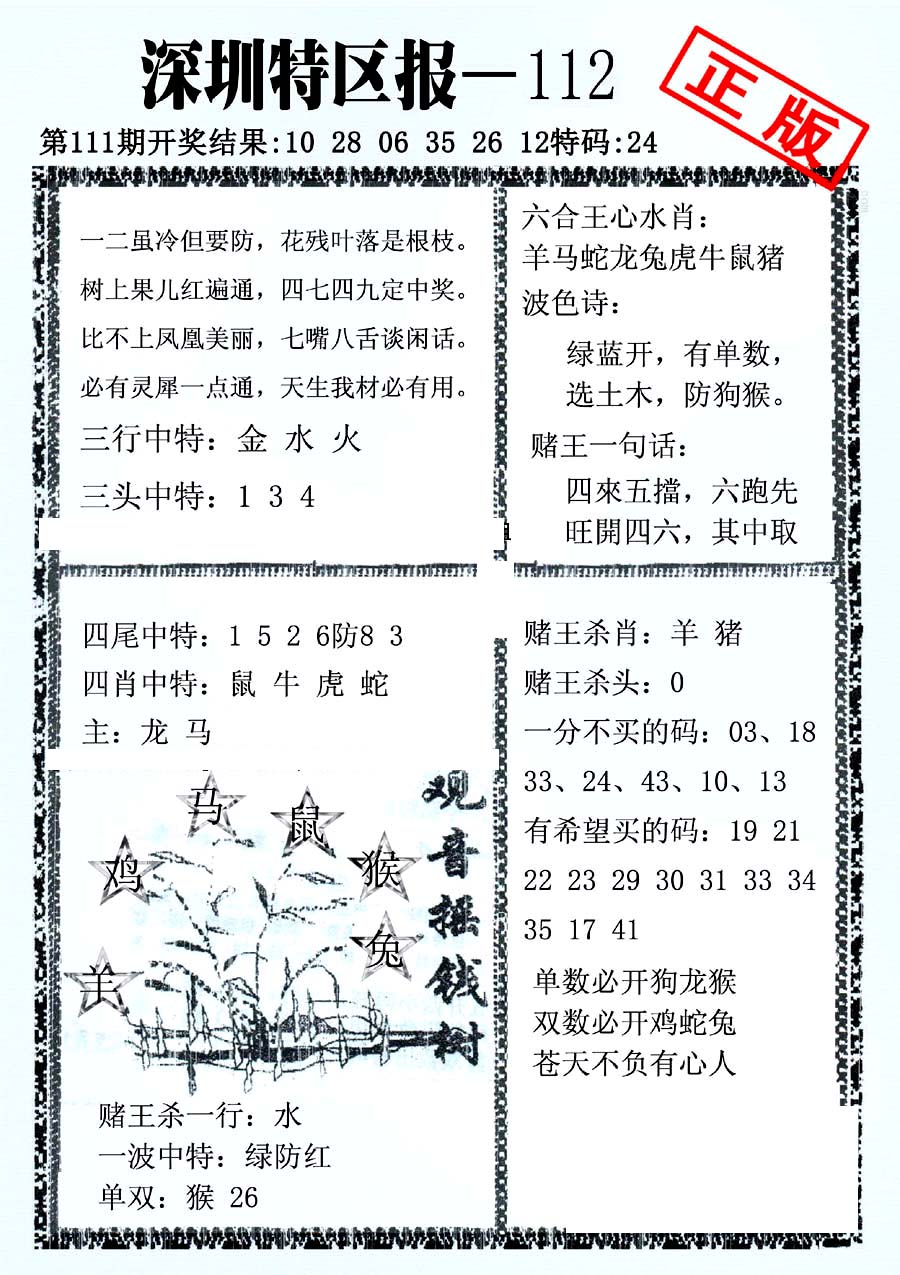 深圳特区报—112
正版
第111期开奖结果:10 28 06 35 26 12特码:24
一二虽冷但要防，花残叶落是根枝。
树上果儿红遍通，四七四九定中奖。
比不上凤凰美丽，七嘴八舌谈闲话。
必有灵犀一点通，天生我材必有用。
三行中特：金 水 火
三头中特：1 3 4
六合王心水肖：
羊马蛇龙兔虎牛鼠猪
波色诗：
绿蓝开，有单数，
选土木，防狗猴。
赌王一句话：
四來五擋，六跑先
旺開四六，其中取
四尾中特：1 5 2 6防8 3
四肖中特：鼠 牛 虎 蛇
主：龙 马
马
鼠
鸡
猴
兔
羊
观音摇钱树
赌王杀一行：水
一波中特：绿防红
单双：猴 26
赌王杀肖：羊 猪
赌王杀头：0
一分不买的码：03、18
33、24、43、10、13
有希望买的码：19 21
22 23 29 30 31 33 34
35 17 41
单数必开狗龙猴
双数必开鸡蛇兔
苍天不负有心人